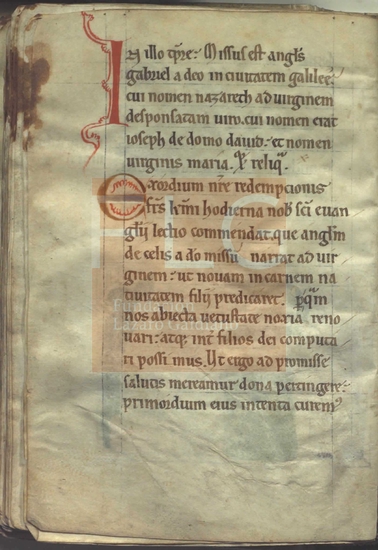 In illo tpre: Missus est angls
gabriel a deo in ciuitatem galilee:
cui nomen nazareth ad uirginem
desponsatam uiro. cui nomen erat
ioseph de domo dauid: et nomen
uirginis maria. Et reliq.
Exordium nre redempcionis
frs kmi hodierna nob sci euan
glij lectio commendat. que anglm
de celis a do missu narrat ad uir
ginem: ut nouam in carnem na
tiuitatem filij predicaret. p qm
nos abiecta uetustate noxia reno
uari: atq int filios dei computa
ri possimus. Ut ergo ad promisse
salutis mereamur dona pertingere:
primordium eius intenta curem
Lázaro Galdiano